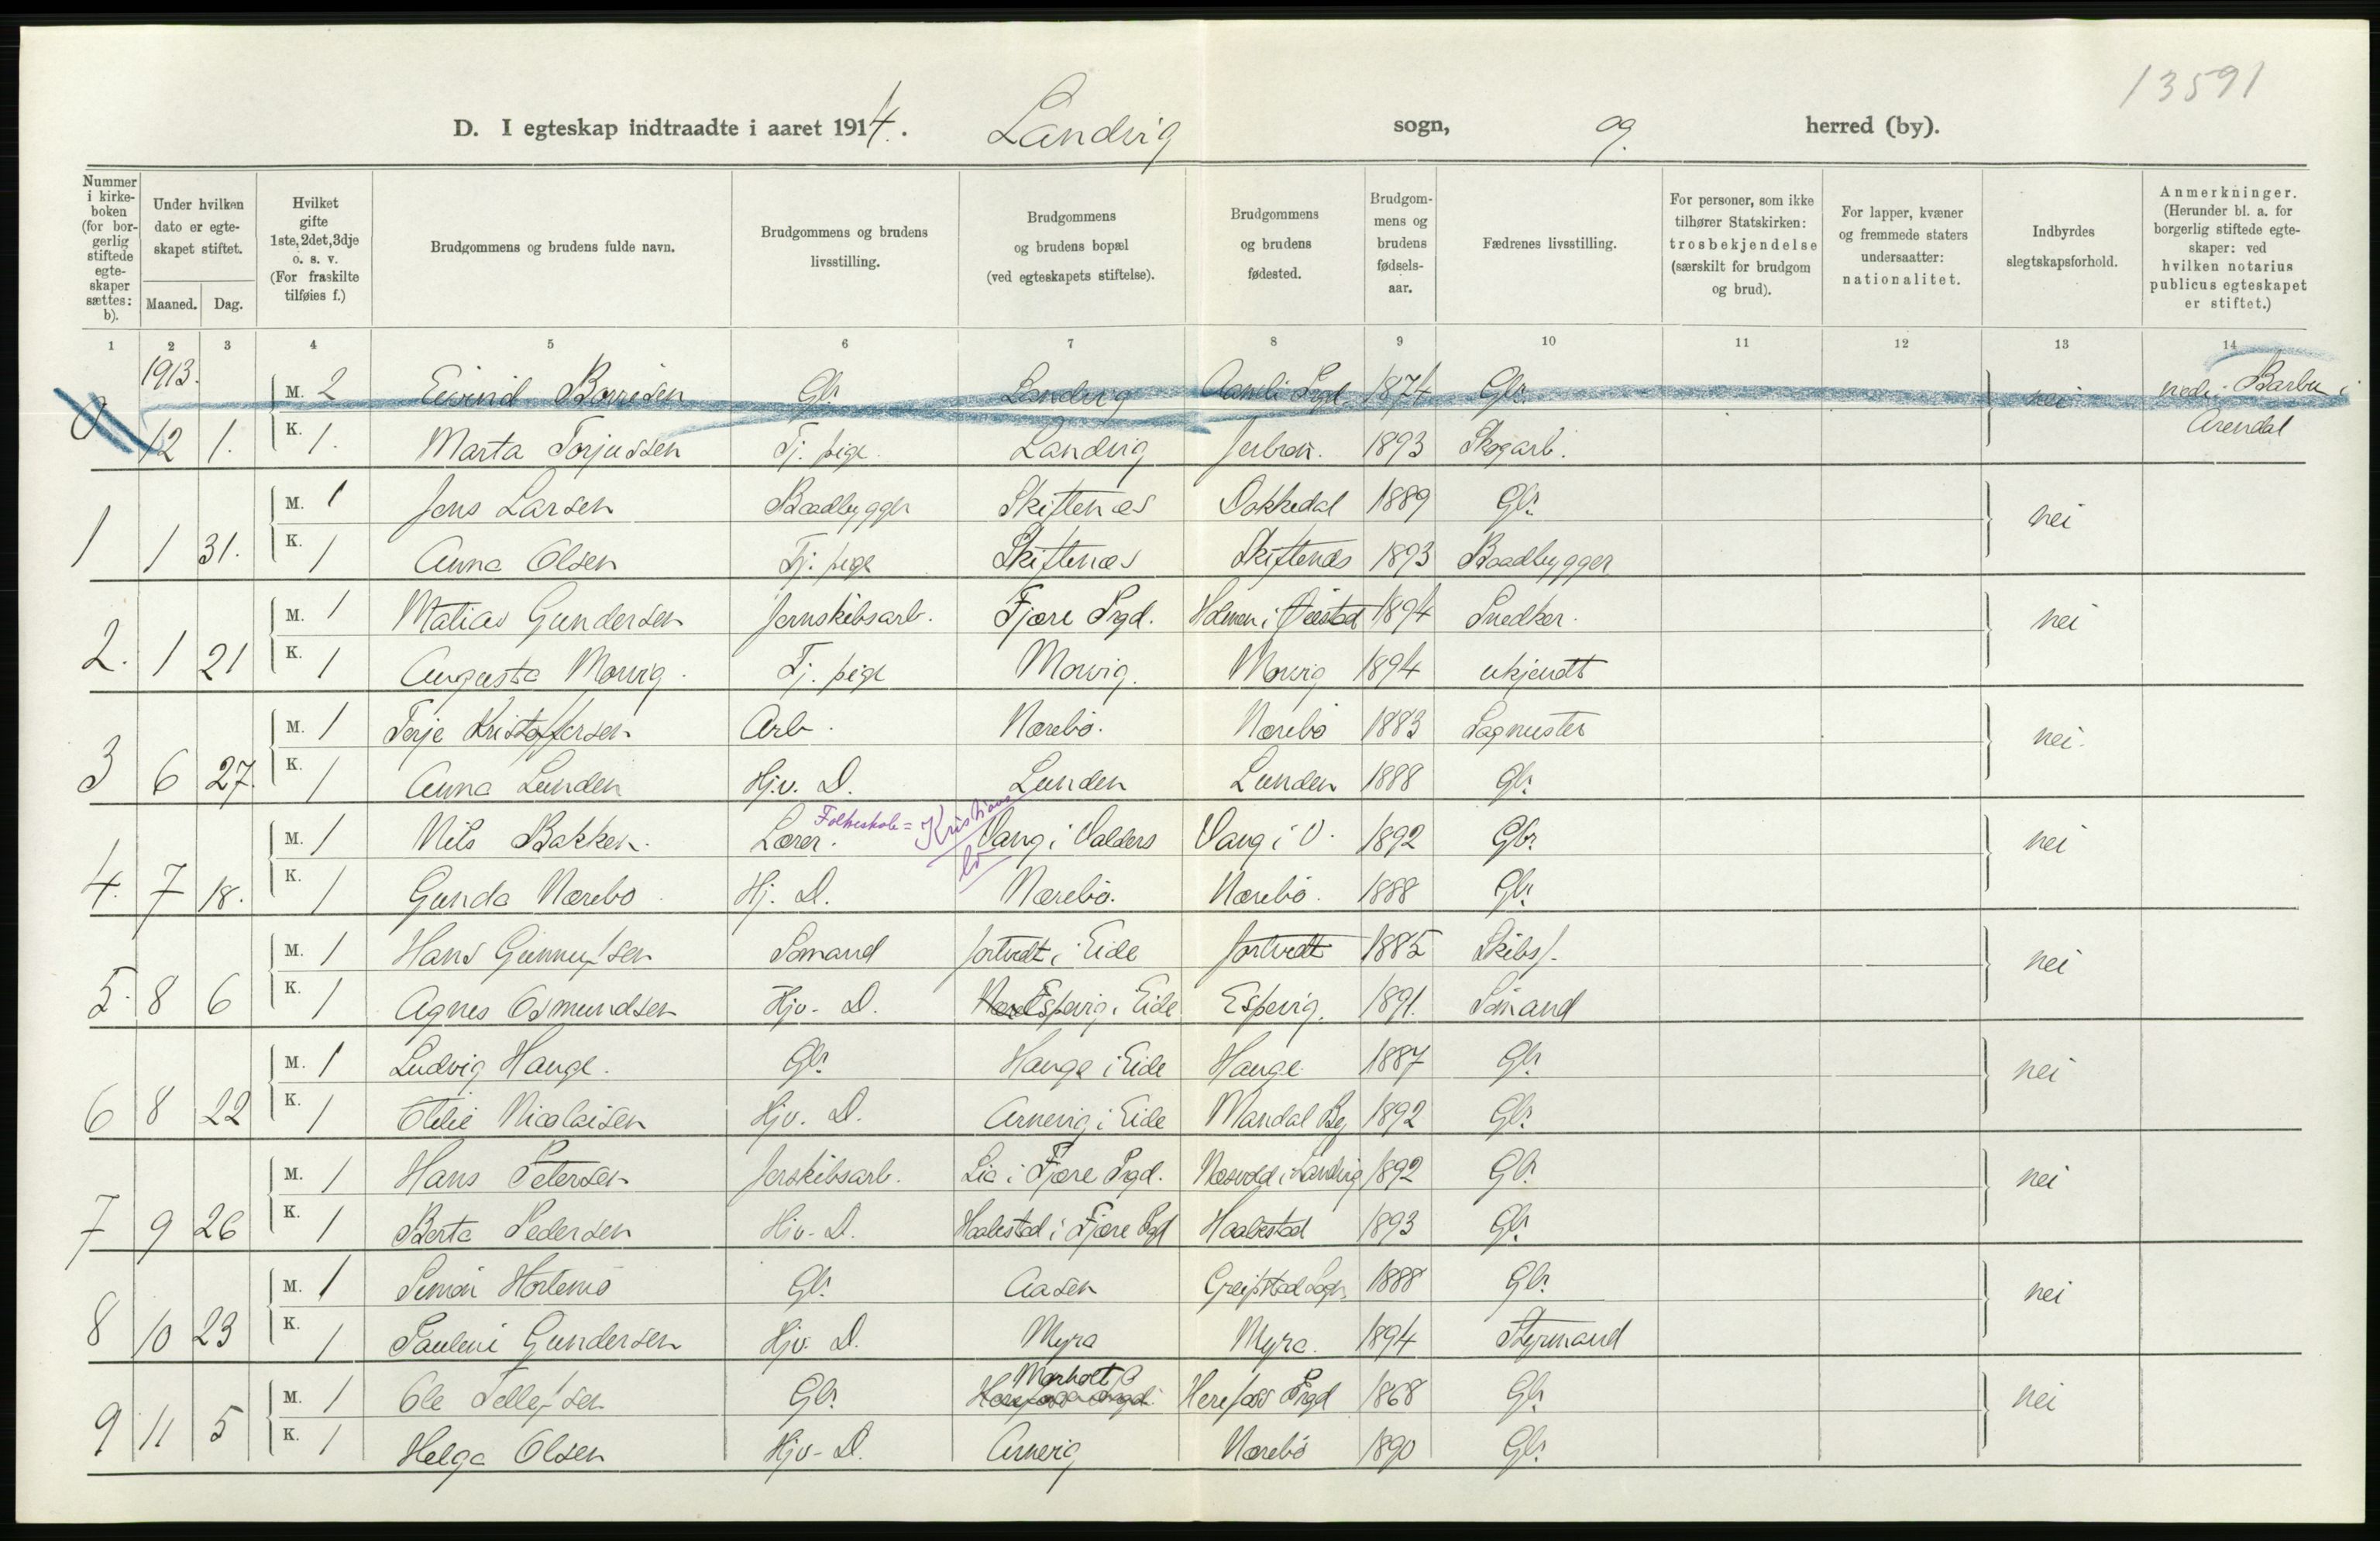 13591
D. I egteskap indtraadte i aaret 1914. Landvig sogn, og herred (by).
Nummer i kirke-boken (for bor-gerlig stiftede egte-skaper sættes: b).
Under hvilken dato er egte-skapet stiftet.
Maaned. Dag.
Hvilket gifte 1ste, 2det, 3dje o. s. v. (For fraskilte tilføies f.)
Brudgommens og brudens fulde navn.
Brudgommens og brudens livsstilling.
Brudgommens og brudens bopæl (ved egteskapets stiftelse).
Brudgommens og brudens fødested.
Brudgom-mens og brudens fødsels-aar.
Fædrenes livsstilling.
For personer, som ikke tilhører Statskirken: trosbekjendelse (særskilt for brudgom og brud).
For lapper, kvæner og fremmede staters undersaatter: nationalitet.
Indbyrdes slegtskapsforhold.
Anmerkninger. (Herunder bl. a. for borgerlig stiftede egte-skaper: ved hvilken notarius publicus egteskapet er stiftet.)
1 2 3 4 5 6 7 8 9 10 11 12 13 14
1913.
M. 2 Eivind Gbr Landvig Aamli Prgd 1874 Gbr. nei Barbu i
12 1. K. 1. Marta Torjussen Tj. pige. Landvig 1893 Skogarb. Arendal
M. 1 Jens Larsen Baadbygger Skiftenæs Dokkedal 1889 Gbr. nei
1 1 31. K. 1 Anna Olsen Tj. pige Skiftenæs Skiftenæs 1893 Baadbygger
M. 1 Matias Gundersen Jernskibsarb. Fjære Prgd. Holmen i Øiestad 1894 Snedker. nei
2. 1 21 K. 1 Augusta Morvig. Tj. pige Morvig. Morvig 1894 ukjendt
M. 1 Terje Kristoffersen Arb. Nærebø. Nærebø 1883 Sagmester nei.
3 6 27. K. 1 Anna Lunden Hjv. D. Lunden Lunden 1888 Gbr.
Folkeskole = Kristians
M. 1 Nils Bakken. Lærer. Vang i Valders Vang i V. 1892 Gbr. nei
4. 7 18. K. 1 Gunda Nærebø. Hj. D. Nærebø. Nærebø. 1888 Gbr.
M. 1 Hans Gunnufsen Sømand Jortvedt i Eide Jortvedt 1885 Skibsf. nei
5. 8 6 K. 1 Agnes Osmundsen Hjv. D. Espevig i Eide Espevig. 1891. Sømand
M. 1 Ludvig Hauge. Gbr. Hauge i Eide Hauge 1887 Gbr. nei
6 8 22 K. 1 Otelie Nicolaisen Hjv. D. Arnevig i Eide Mandal By 1892 Gbr.
M. 1 Hans Petersen Jerskibsarb. Lia i Fjære Prgd. Næsvold i Landvig 1892 Gbr. nei
7 9 26 K. 1 Berta Pedersen Hjv. D. Haabestad i Fjære Prgd Haabestad 1893 Gbr.
M. 1 Simon Hortemo Gbr. Aasen Greipstad Sogn 1888 Gbr. nei
8 10 23 K. 1 Pauline Gundersen Hjv. D. Myra Myra. 1894 Styrmand
M. 1 Ole Tellefsen Gbr. Morholt Herefoss Prgd 1868 Gbr. nei
9 11 5 K. 1 Helga Olsen Hjv. D. Arnevig Nærebø 1890 Gbr.